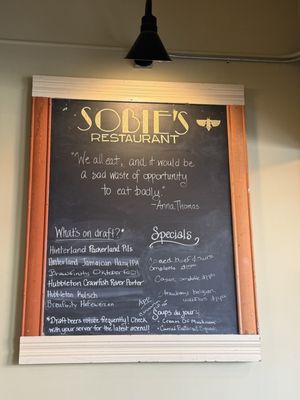 SOBIE'S
RESTAURANT
"We all eat, and it would be
a sad waste of opportunity
to eat badly."
-Anna Thomas
What's on draft?*
Hinterland Packerland Pils
Hinterland Jamaican Haze IPA
Brewfinity Oktoberfest
Hubbleton Crawfish River Porter
Hubbleton Kolsch
Brewfinity Hefeweizen
*Draft beers rotate frequently! Check
with your server for the latest arrival!
Specials
Soups du jour
• Cream of Mushroom
• Squash